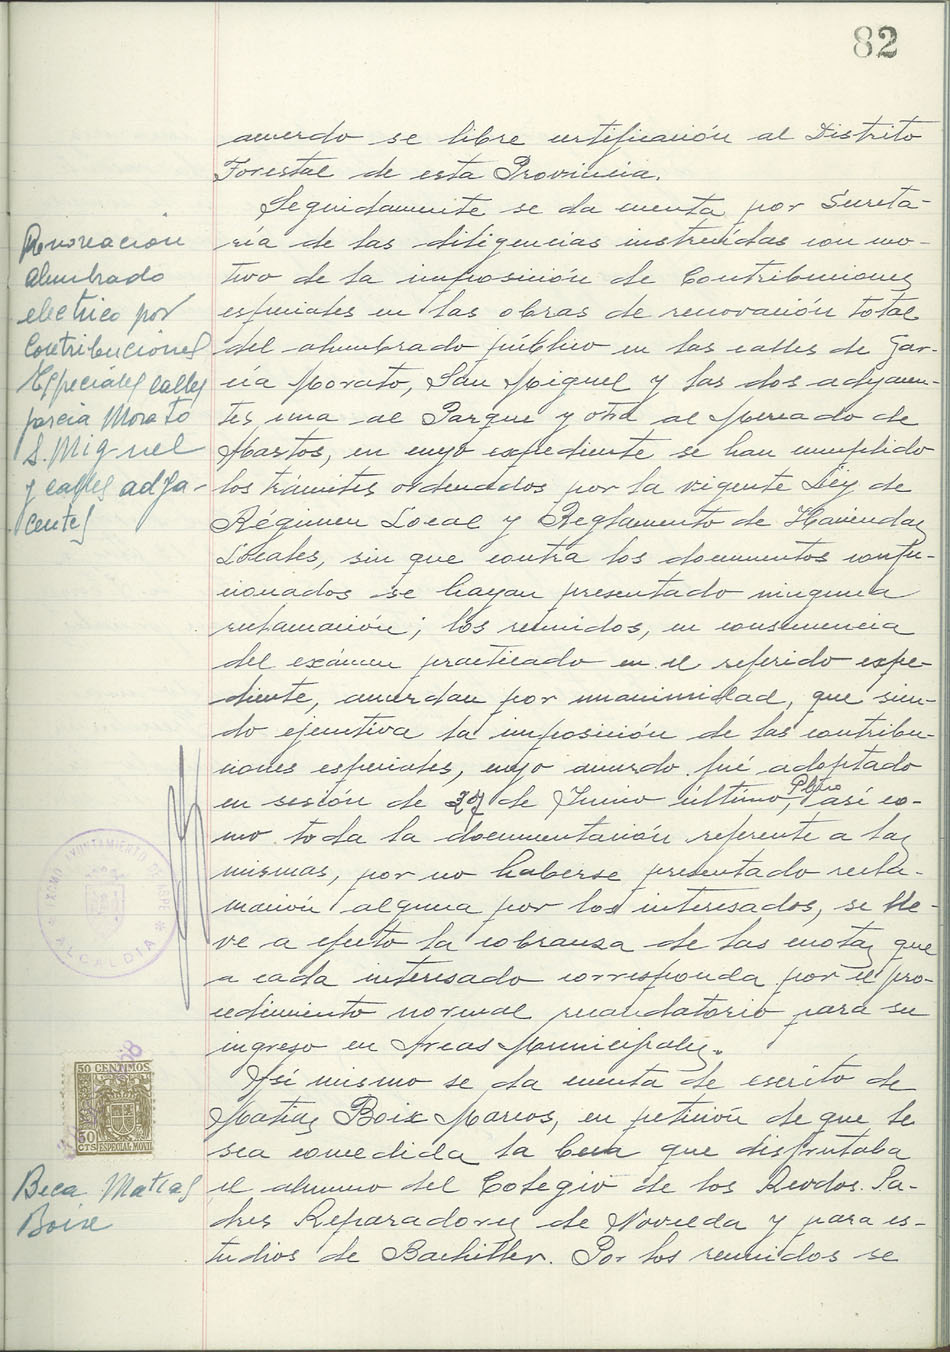 82
acuerdo se libre certificación al Distrito
Forestal de esta Provincia.
Seguidamente se da cuenta por Secreta-
ría de las diligencias instruídas con mo-
tivo de la imposición de Contribuciones
especiales en las obras de renovación total
del alumbrado público en las calles de Gar-
cía Morato, San Miguel y las dos adyacen-
tes una al Parque y otra al Mercado de
Abastos, en cuyo expediente se han cumplido
los trámites ordenados por la vigente Ley de
Régimen Local y Reglamento de Haciendas
Locales, sin que contra los documentos confec-
cionados se hayan presentado ninguna
reclamación; los reunidos, en consecuencia
del exámen practicado en el referido expe-
diente, acuerdan por unanimidad, que sien-
do ejecutiva la imposición de las contribu-
ciones especiales, cuyo acuerdo fué adoptado
en sesión de 27 de Junio último, así co-
mo toda la documentación referente a las
mismas, por no haberse presentado recla-
mación alguna por los interesados, se lle-
ve a efecto la cobranza de las cuotas que
a cada interesado corresponda por el pro-
cedimiento normal recaudatorio para su
ingreso en Arcas Municipales.
Así mismo se da cuenta de escrito de
Matías Boix Marcos, en petición de que le
sea concedida la beca que disfrutaba
el alumno del Colegio de los Rvdos. Pa-
dres Reparadores de Novelda y para es-
tudios de Bachiller. Por los reunidos se
Renovación
alumbrado
electrico por
Contribuciones
Especiales calles
García Morato
S. Miguel
y calles adya-
centes
EXCMO. AYUNTAMIENTO DE ASPE
* ALCALDIA *
50 CENTIMOS
50
CTS ESPECIAL MOVIL
Beca Matías
Boix